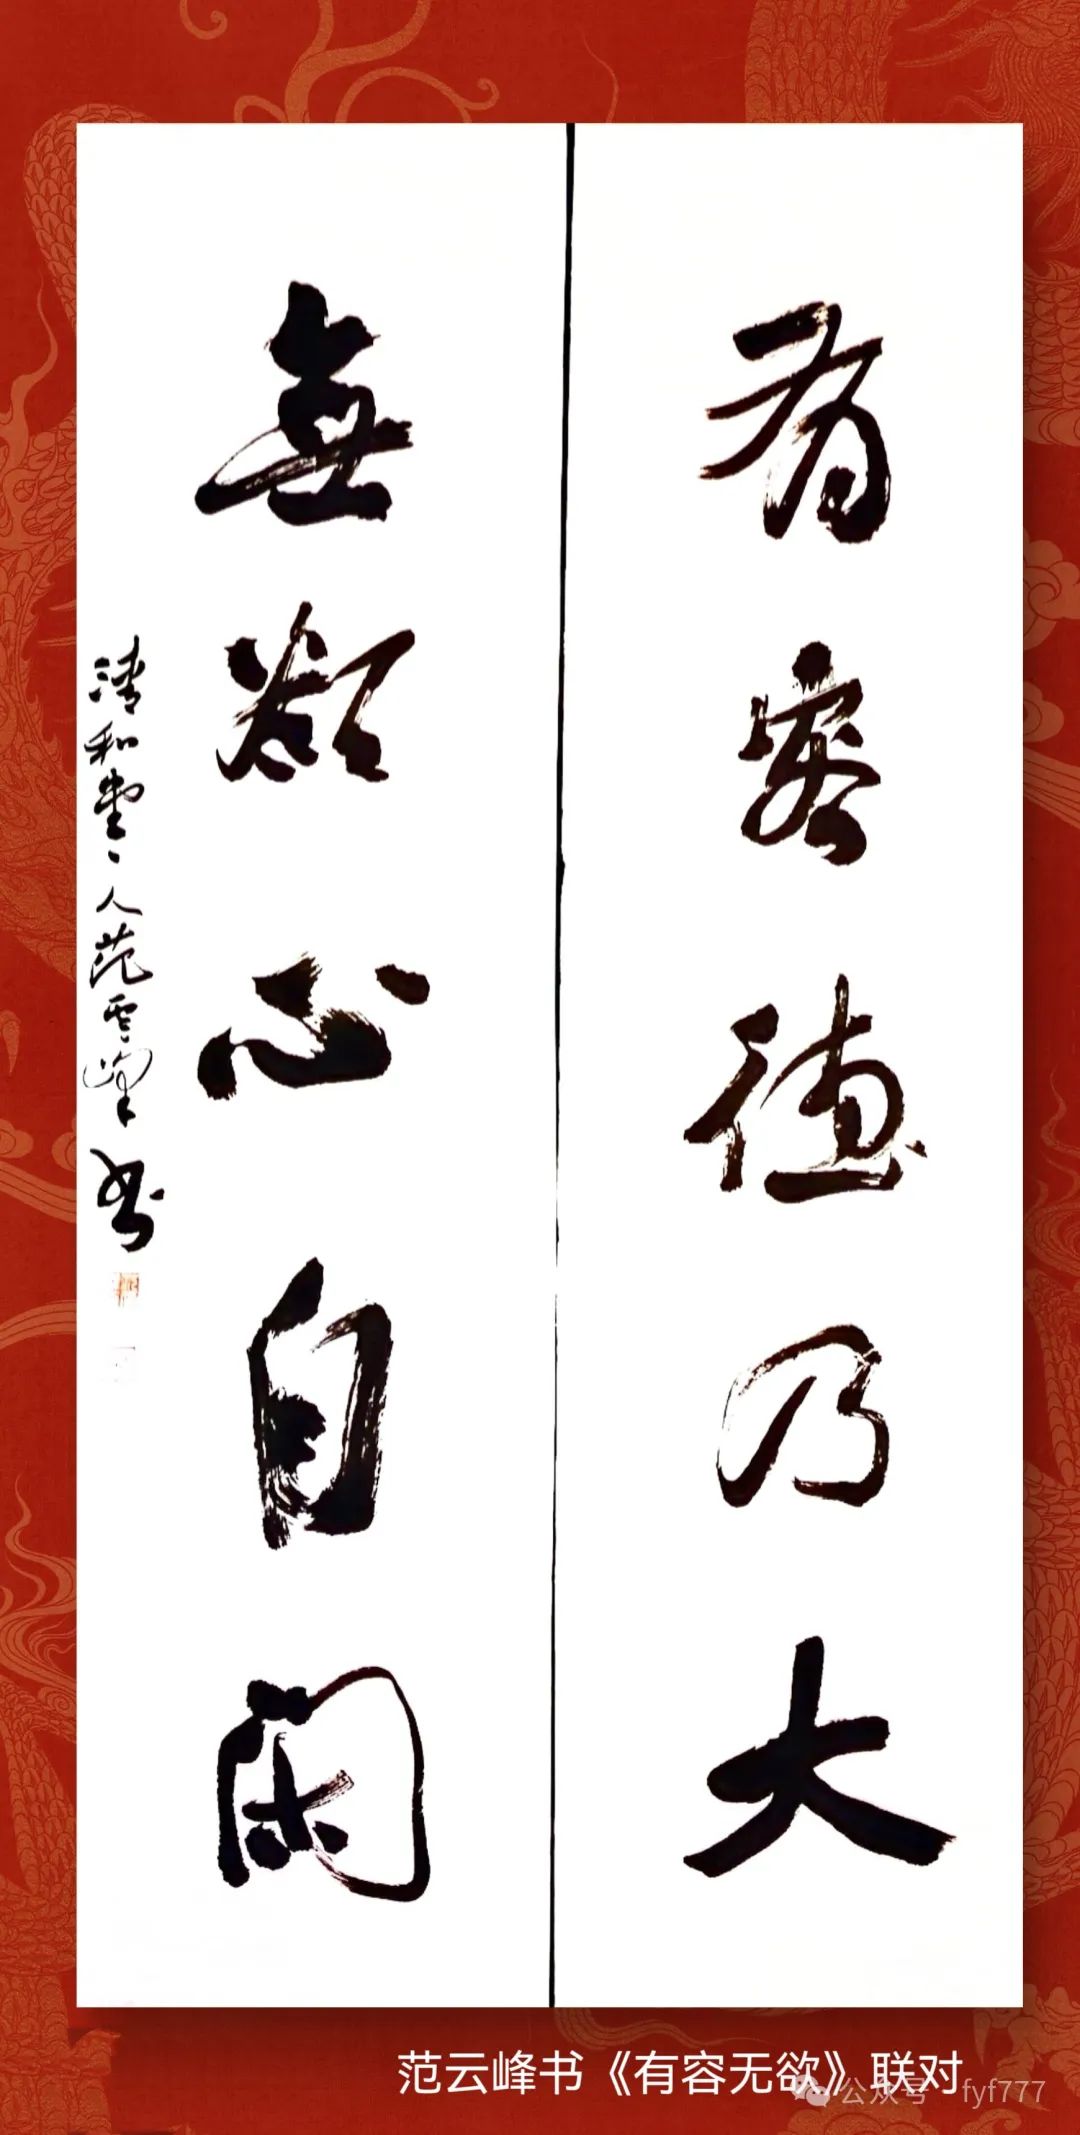 有容德乃大
無欲心自闲
清和堂主人范云峰书
范云峰书《有容无欲》联对
公众号 fyf777